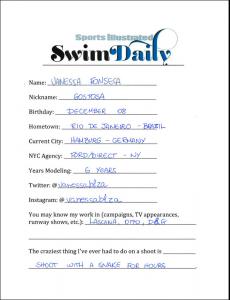 Sports Illustrated
Swim Daily
Name: VANESSA FONSECA
Nickname: GOSTOSA
Birthday: DECEMBER 08
Hometown: RIO DE JANEIRO - BRAZIL
Current City: HAMBURG - GERMANY
NYC Agency: FORD/DIRECT - NY
Years Modeling: 6 YEARS
Twitter: @vanessabfza
Instagram: @vanessabfza
You may know my work in (campaigns, TV appearances,
runway shows, etc.): LASCANA, OTTO, D&G
The craziest thing I've ever had to do on a shoot is
SHOOT WITH A SNAKE FOR HOURS